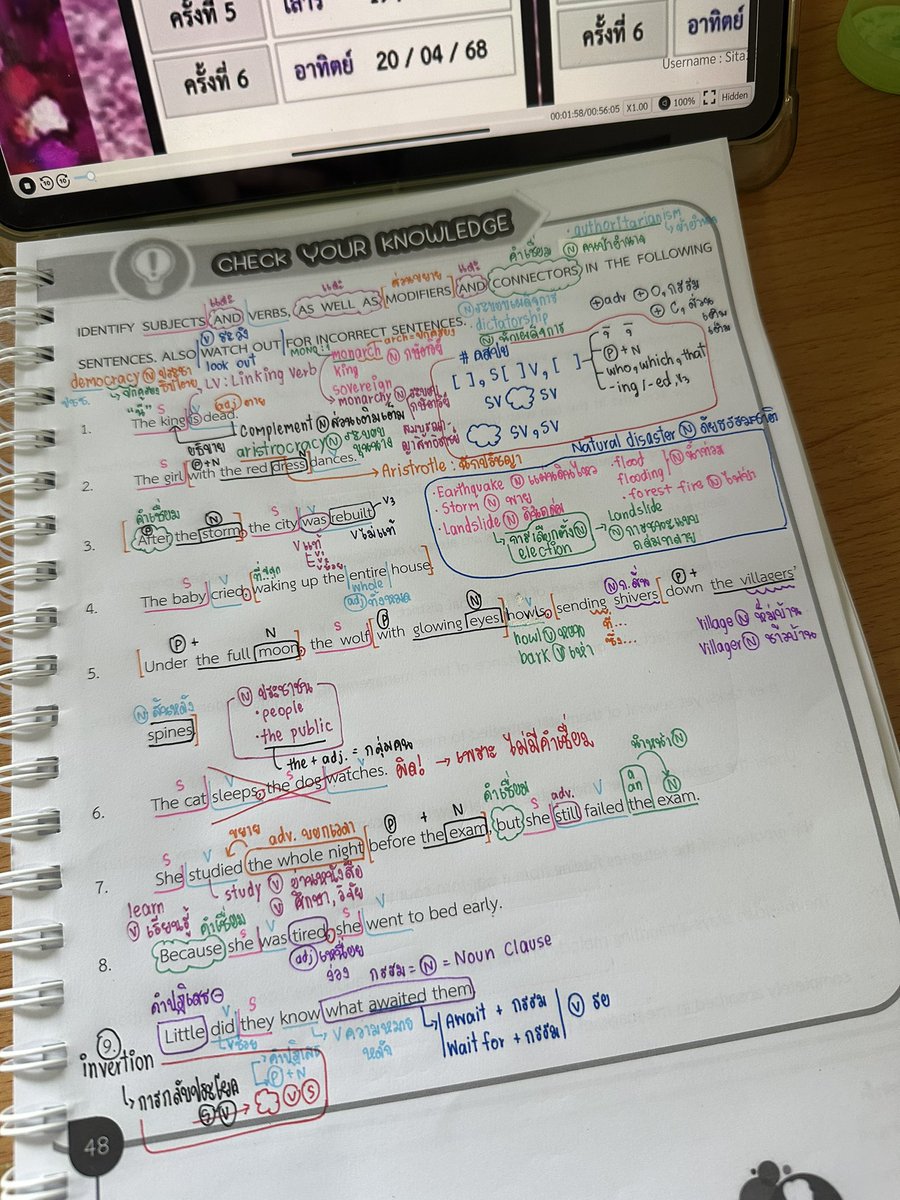 ครั้งที่ 5
เสาร์
ครั้งที่ 6
อาทิตย์ 20 / 04 / 68
ครั้งที่ 6
อาทิตย์
Username : Sita
00:01:58/00:56:05 X1.00 100% Hidden
CHECK YOUR KNOWLEDGE
authoritarianism
คำเชื่อม
และ
และ
ส่วนขยาย
และ
IDENTIFY SUBJECTS AND VERBS, AS WELL AS MODIFIERS AND CONNECTORS IN THE FOLLOWING
SENTENCES. ALSO WATCH OUT FOR INCORRECT SENTENCES.
V ระวัง
look out
N ระบอบเผด็จการ
dictatorship
+adv +O, กรรม
+C, ส่วนเติมเต็ม
democracy N
LV : Linking verb
monarch N กษัตริย์
king
sovereign
monarchy N
N ผู้เผด็จการ
# คสขป
[ ], S [ ] V, [ ]
SV SV
SV, SV
P + N
who, which, that
-ing / -ed, V3
S V adj ตาย
1. The king is dead.
Complement N ส่วนเติมเต็ม
aristrocracy N ระบอบขุนนาง
Aristrotle : นักปรัชญา
S ขยาย P+N V
2. The girl with the red dress dances.
Natural disaster N ภัยธรรมชาติ
• Earthquake N แผ่นดินไหว
• Storm N พายุ
• Landslide N ดินถล่ม
• flood
flooding N น้ำท่วม
• forest fire N ไฟป่า
การเลือกตั้ง N
election
Landslide
คำเชื่อม
P N S V V3
3. After the storm, the city was rebuilt
V แท้ V ไม่แท้
V ช่วย
S V
4. The baby cried, waking up the entire house.
whole
adj ทั้งหมด
P + N S P N V P +
5. Under the full moon, the wolf with glowing eyes howls, sending shivers down the villagers'
howl V หอน
bark V เห่า
ที่...
ซึ่ง...
village N หมู่บ้าน
villager N ชาวบ้าน
N สันหลัง
spines
N ประชาชน
• people
• the public
the + adj. = กลุ่มคน
S V S V
6. The cat sleeps, the dog watches. ผิด! → เพราะ ไม่มีคำเชื่อม
นำหน้า N
ขยาย adv. บอกเวลา P + N คำเชื่อม S adv. V a an N
7. She studied the whole night before the exam, but she still failed the exam.
study V อ่านหนังสือ
V ศึกษา, วิจัย
learn
V เรียนรู้
คำเชื่อม S V S V
8. Because she was tired, she went to bed early.
adj เหนื่อย
ง่วง
กรรม = N = Noun Clause
คำปฏิเสธ ⊖ S
9. Little did they know what awaited them
V ช่วย
V ความหมายหลัก
Await + กรรม
Wait for + กรรม
V รอ
invertion
การกลับประโยค
S V → V S
คำปฏิเสธ
P + N
48